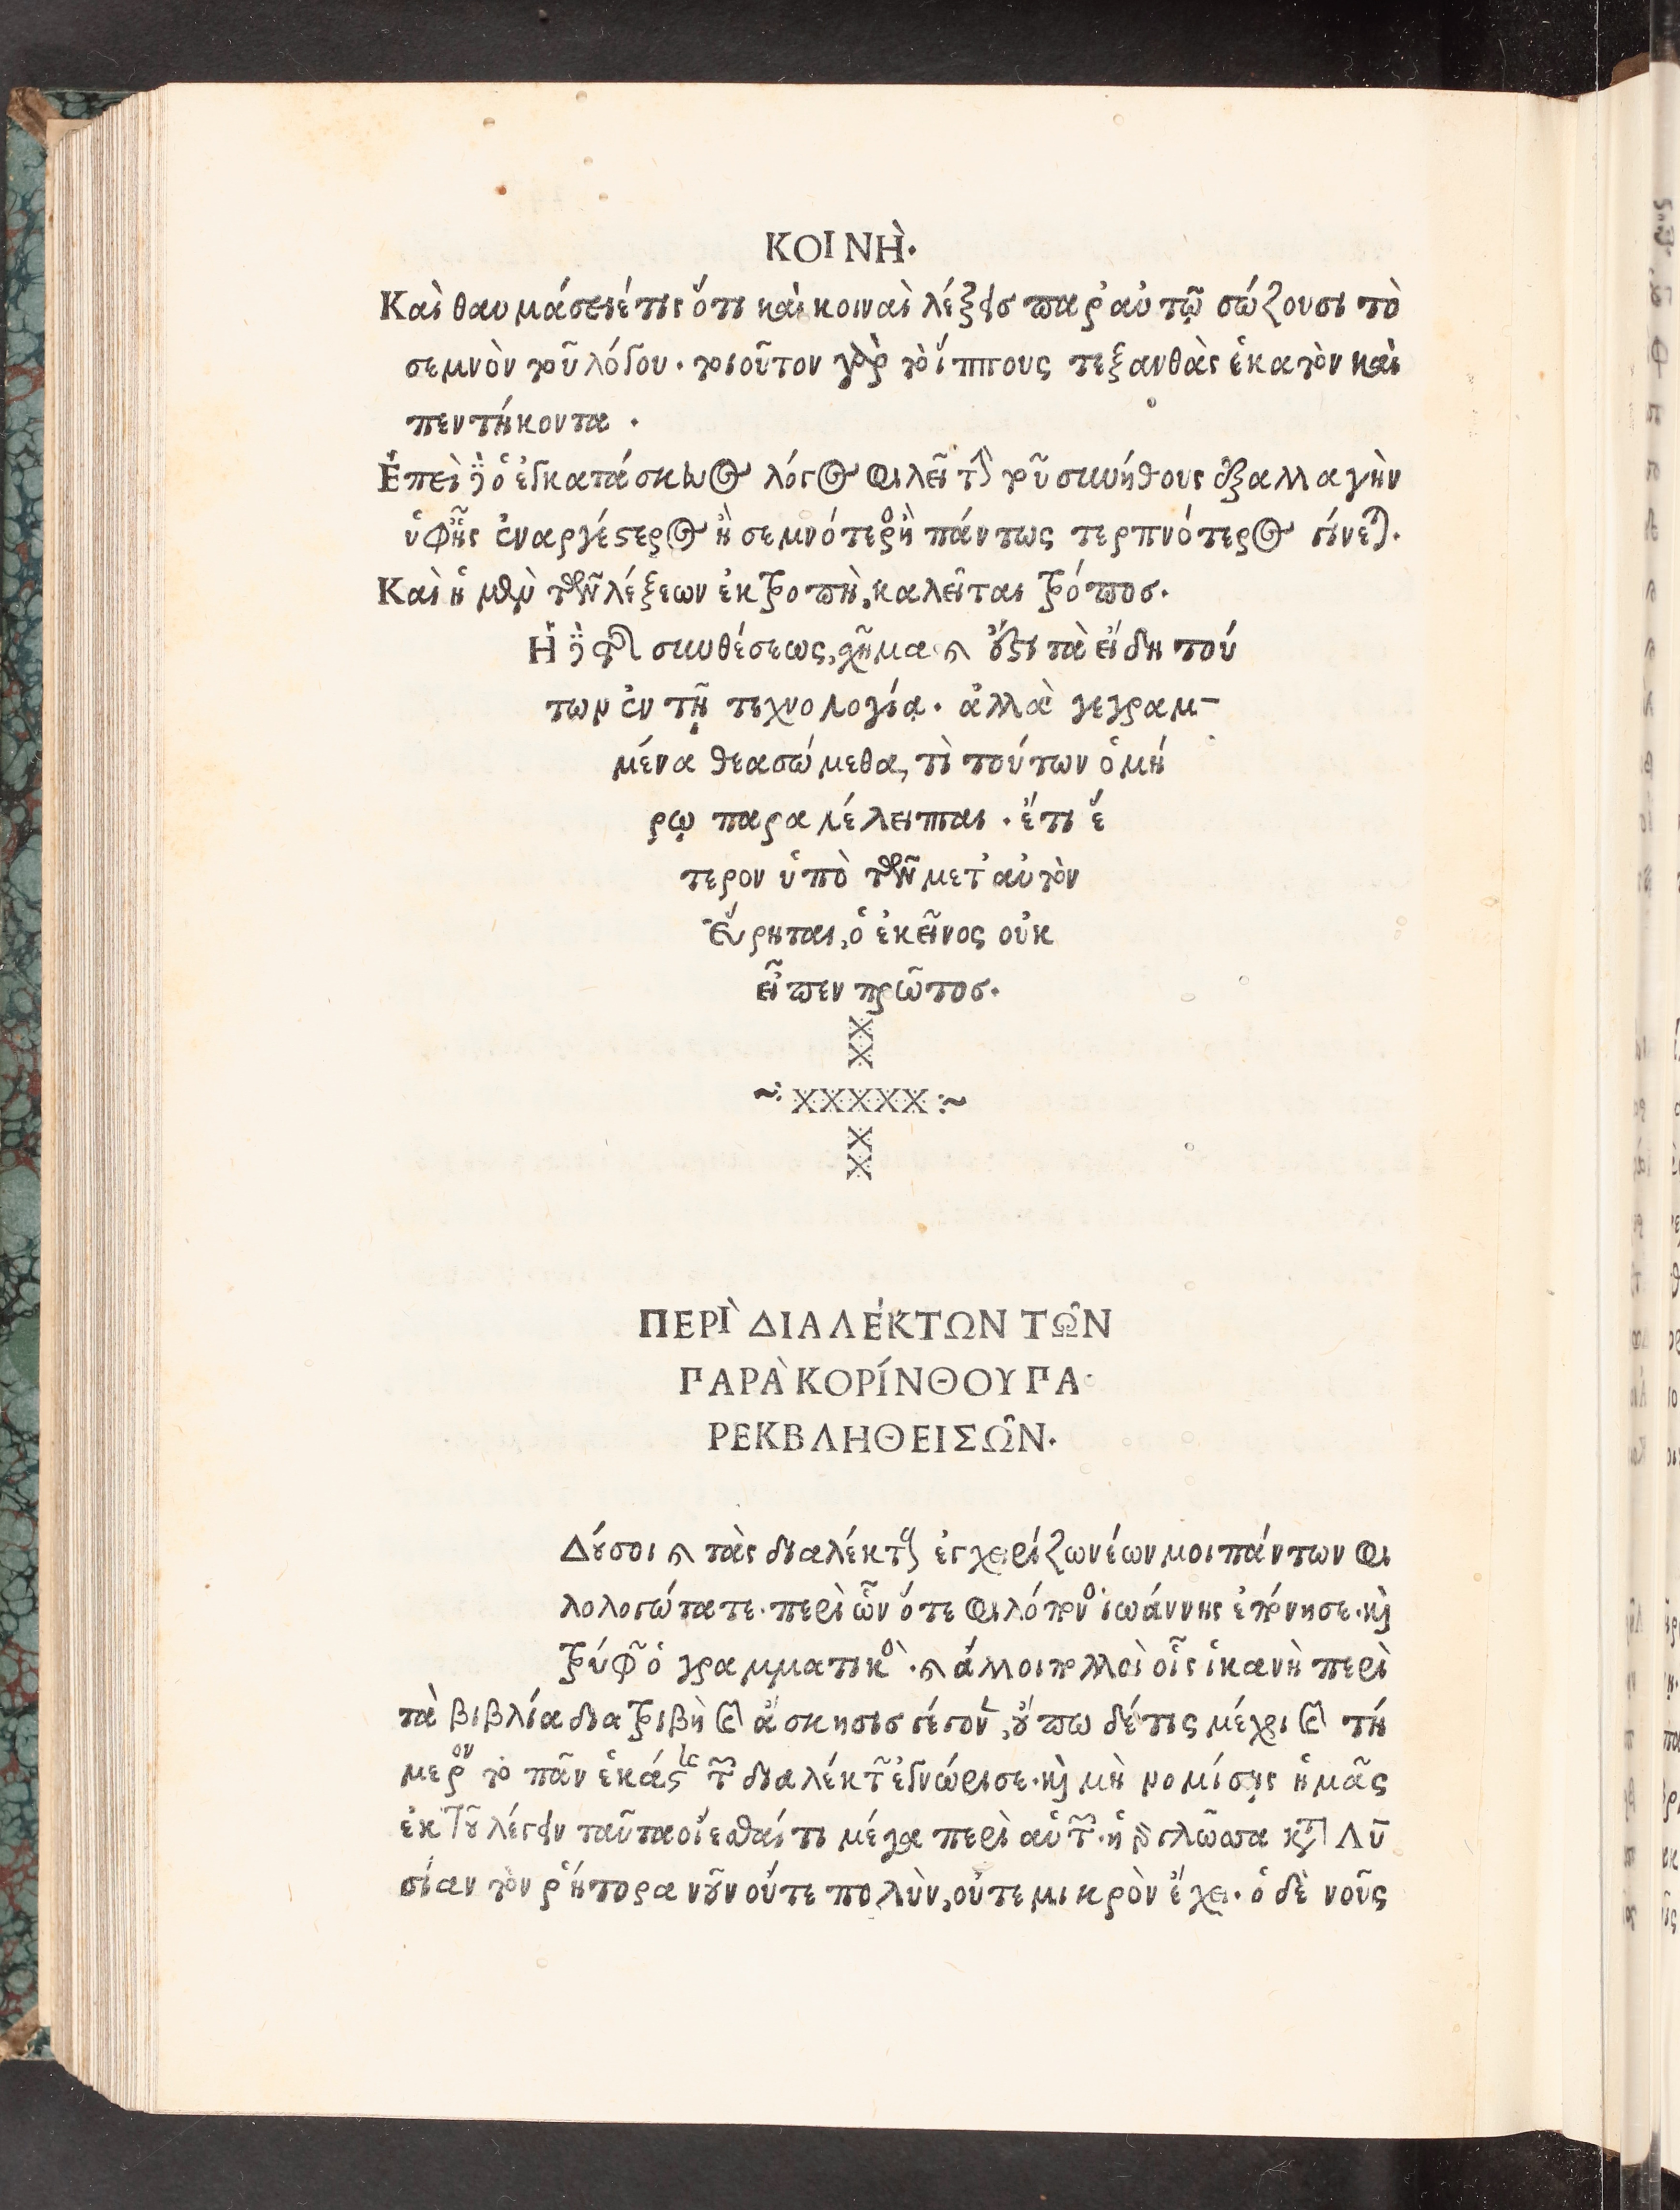 ΚΟΙΝῊ.
Καὶ θαυμάσειέ τις ὅτι καὶ κοιναὶ λέξεις παρ' αὐτῷ σώζουσι τὸ
σεμνὸν τοῦ λόγου. τοιοῦτον γὰρ τὸ ἵππους τε ξανθὰς ἑκατὸν καὶ
πεντήκοντα .
Ἐπεὶ δὲ ὁ ἐγκατάσκευος λόγος φιλεῖ τὴν τοῦ συνήθους ἐξαλλαγὴν
ὑφ' ἧς ἐναργέστερος ἢ σεμνότερος ἢ πάντως τερπνότερος γίνεται.
Καὶ ἡ μὲν τῶν λέξεων ἐκτροπὴ, καλεῖται τρόπος.
Ἡ δὲ τῆς συνθέσεως, σχῆμα καὶ ἔστι τὰ εἴδη τού
των ἐν τῇ τεχνολογίᾳ. ἀλλὰ γεγραμ-
μένα θεασώμεθα, τὶ τούτων ὁμή
ρῳ παραλέλειπται . ἔτι ἕ
τερον ὑπὸ τῶν μετ' αὐτὸν
εὕρηται, ὃ ἐκεῖνος οὐκ
εἶπεν πρῶτος.
ΠΕΡῚ ΔΙΑΛΈΚΤΩΝ ΤΩ͂Ν
ΠΑΡᾺ ΚΟΡΊΝΘΟΥ ΠΑ
ΡΕΚΒΛΗΘΕΙΣΩ͂Ν.
Δύσοι καὶ τὰς διαλέκτους ἐγχειρίζων έων μοι πάντων φι
λολογώτατε. περὶ ὧν ὅτε φιλόπονος ἰωάννης ἐπόνησε. καὶ
τρύφων ὁ γραμματικὸς. καὶ ἄλλοι πολλοὶ οἷς ἱκανὴ περὶ
τὰ βιβλία διατριβὴ καὶ ἄσκησις γέγονε, οὔπω δέ τις μέχρι καὶ τή
μερον τὸ πᾶν ἑκάστης τῶν διαλέκτων ἐγνώρισε. καὶ μὴ νομίσῃς ἡμᾶς
ἐκ τοῦ λέγειν ταῦτα οἴεσθαί τι μέγα περὶ αὑτῶν. ἡ γὰρ γλῶσσα κατὰ Λυ
σίαν τὸν ῥήτορα νοῦν οὔτε πολὺν, οὔτε μικρὸν ἔχει. ὁ δὲ νοῦς